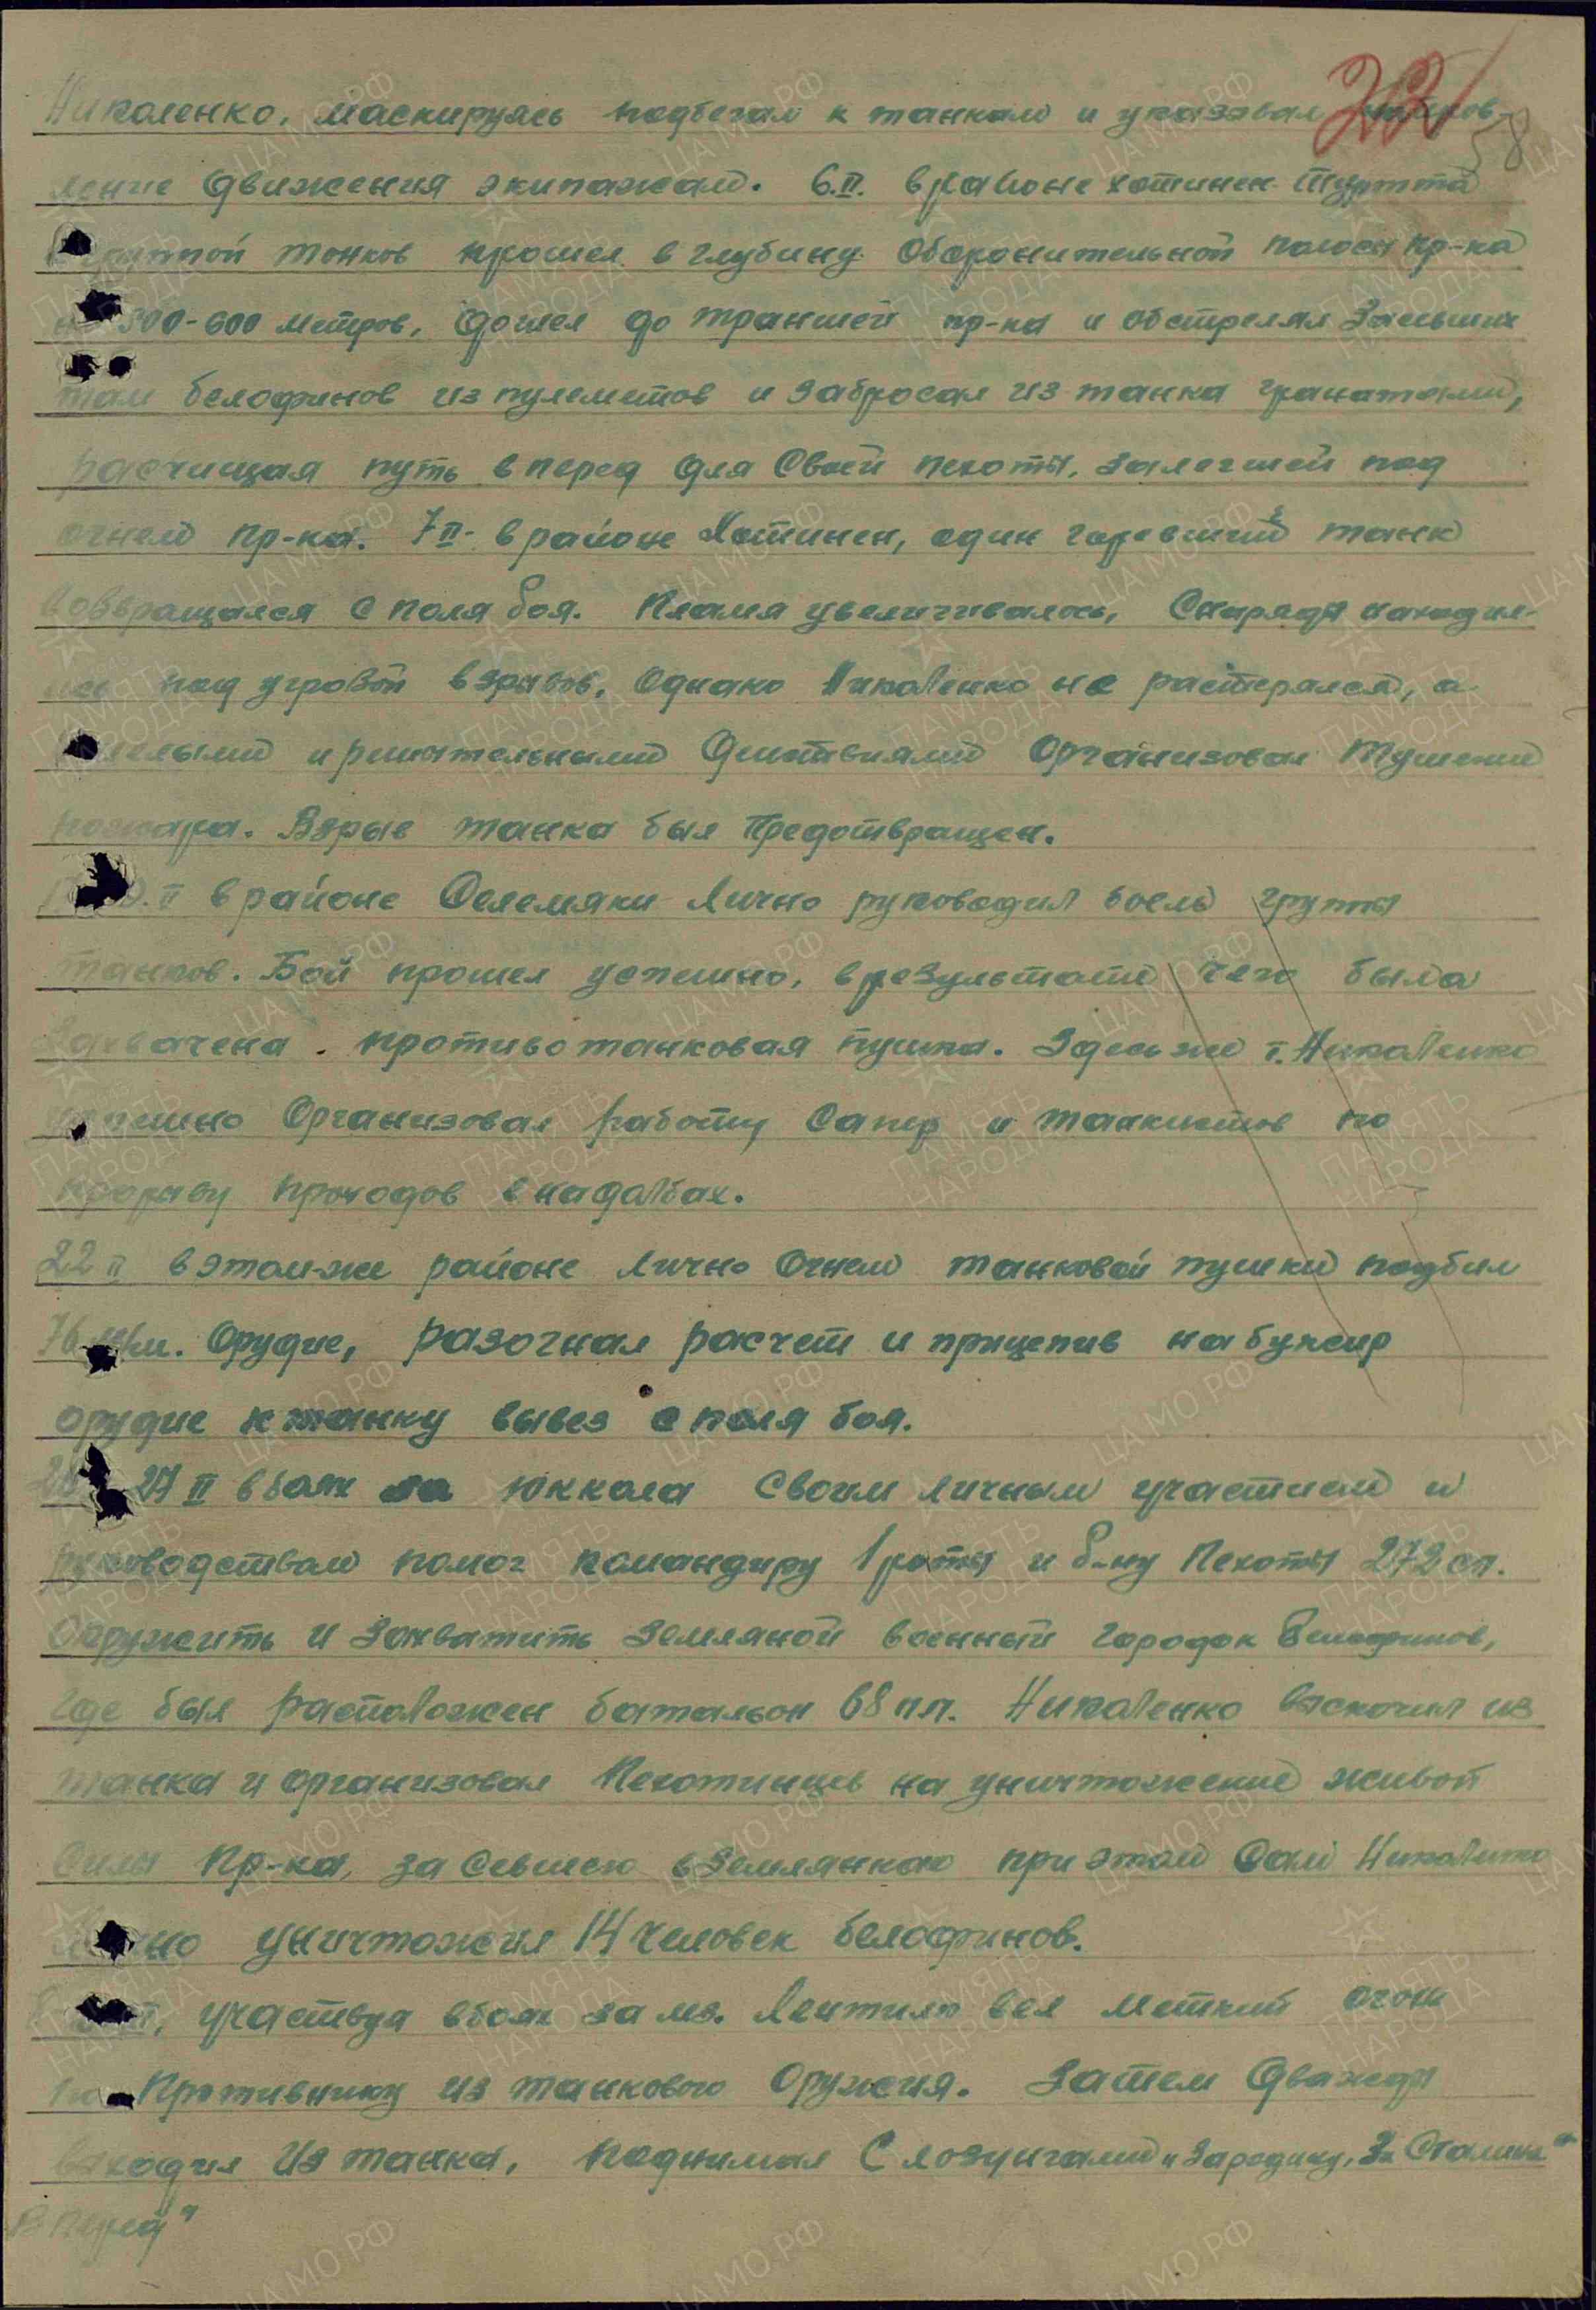 Николенко, маскируясь подбегал к танкам и указывал направ-
58
ление движения экипажам. 6.II. в районе Хотинен-Туртта
группой танков прошел в глубину оборонительной полосы пр-ка
300-600 метров, дошел до траншей пр-ка и обстрелял засевших
там белофинов из пулеметов и забросал из танка гранатами,
расчищая путь вперед для своей пехоты, залегшей под
огнем пр-ка. 7 II- в районе Хотинен, один горевший танк
возвращался с поля боя. Пламя увеличивалось, снаряды находил-
ись под угрозой взрывов, однако Николенко не растерялся, а
смелыми и решительными действиями организовал тушение
пожара. Взрыв танка был предотвращен.
II в районе Селемяки лично руководил боем группы
танков. Бой прошел успешно, в результате чего была
захвачена. противотанковая пушка. Здесь же т. Николенко
успешно организовал работу сапер и танкистов по
прорыву проходов в надолбах.
22 II в этом же районе лично огнем танковой пушки подбил
76 мм. орудие, разогнал расчет и прицепив на буксир
орудие к танку вывез с поля боя.
27 II в боях за Юккола своим личным участием и
руководством помог командиру 1 роты и б-ну пехоты 272 сп.
окружить и захватить земляной военный городок белофинов,
где был расположен батальон 68 пп. Николенко выскочил из
танка и организовал пехотинцев на уничтожение живой
силы пр-ка, засевшею в землянкаю при этом сам Николенко
лично уничтожил 14 человек белофинов.
участвуя в боях за мз. Лентиля вел меткий огонь
по противнику из танкового оружия. Затем дважды
выходил из танка, поднимал с лозунгами „За родину, За Сталина"
Вперед"